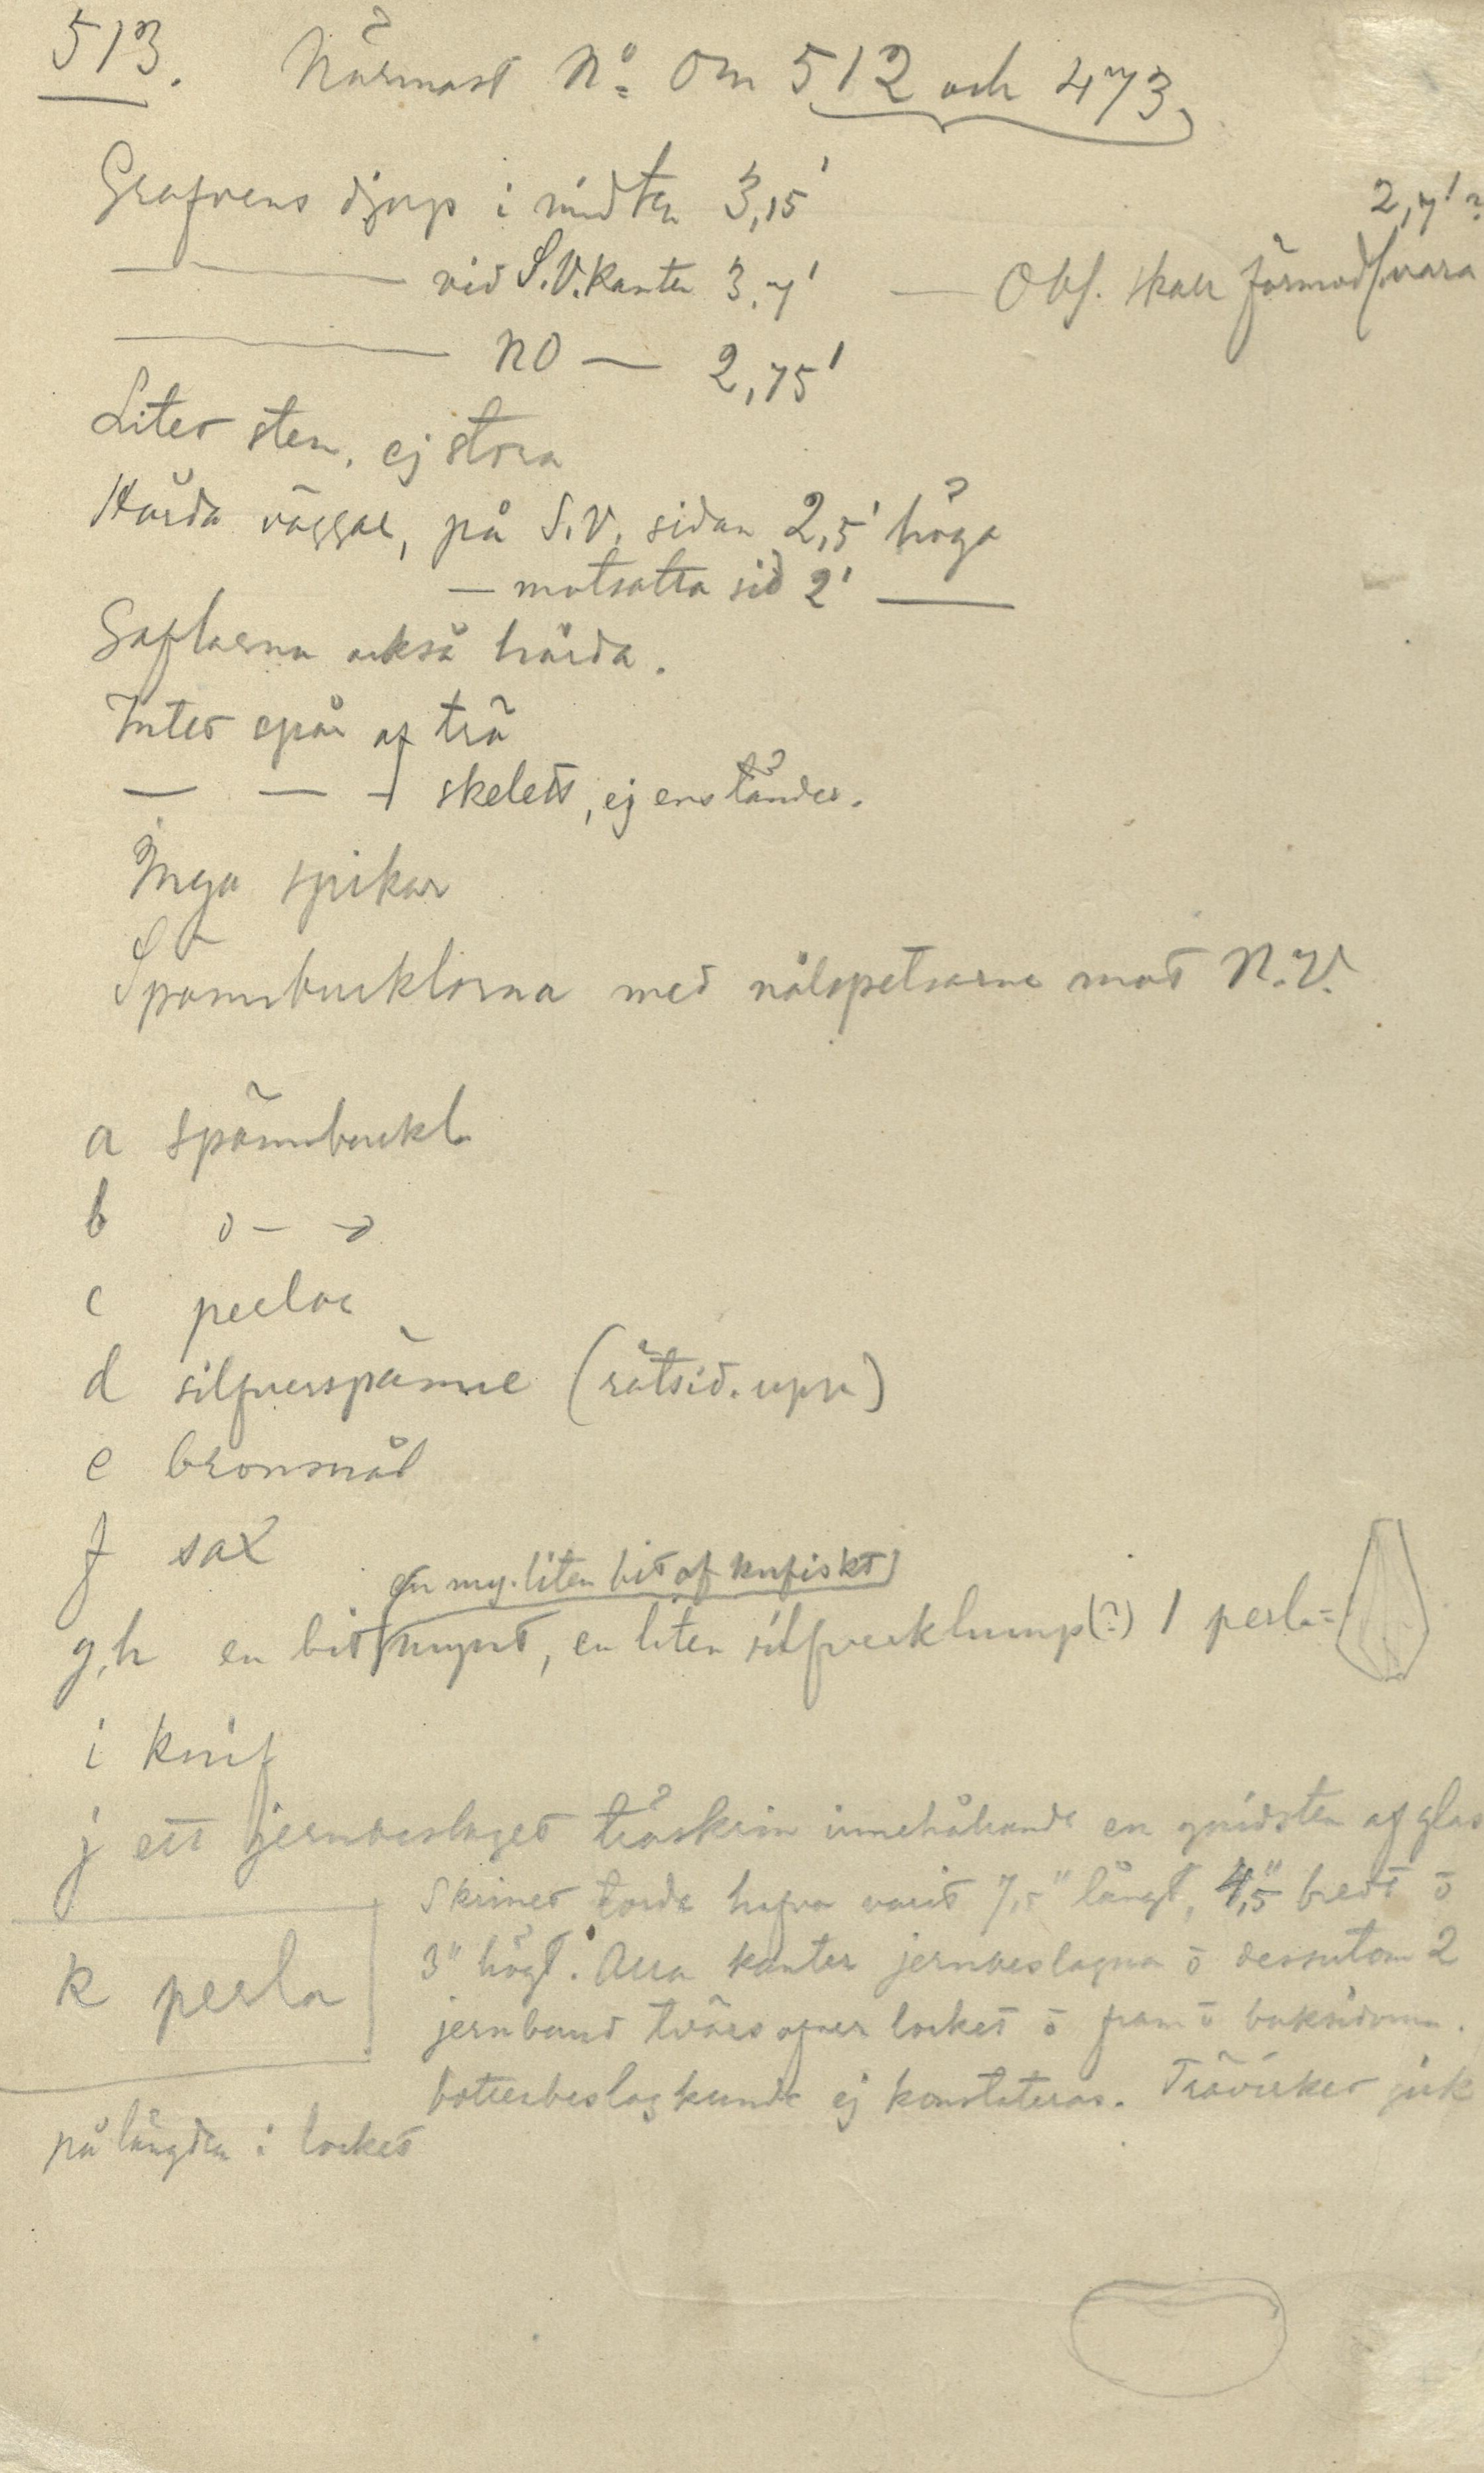 513. Närmast No om 512 och 473
Grafvens djup i midten 3,15'
2,7'?
— vid S.V. kanten 3,7' — Obs. skall förmodl. vara
— NO — 2,75'
Litet sten, ej stora
Hårda väggar, på S.V. sidan 2,5' höga
— motsatta sid 2' —
Gaflarna också hårda.
Intet spår af trä
— — — skelett, ej ens tänder.
Inga spikar
Spännbucklorna med nålspetsarne mot N.V.
a spännbuckl.
b d— o
c perlor
d silfverspänne (rätsid. upp)
e bronsnål
f sax
en my. liten bit af kufiskt
g,h en bit mynt, en liten silfverklump (?) 1 perla =
i knif
j ett jernbeslaget träskrin innehållande en gnidsten af glas
Skrinet torde hafva varit 7,5" långt, 4,5" bredt o
3" högt. Alla kanter jernbeslagna o dessutom 2
k perla
jernband tvärs öfver locket o fram o baksidorna.
bottenbeslag kunde ej konstateras. Trävirket gick
på längden i locket